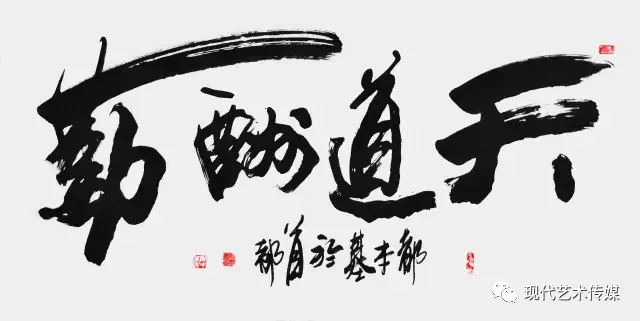 天道酬勤
郝本基於首都
现代艺术传媒